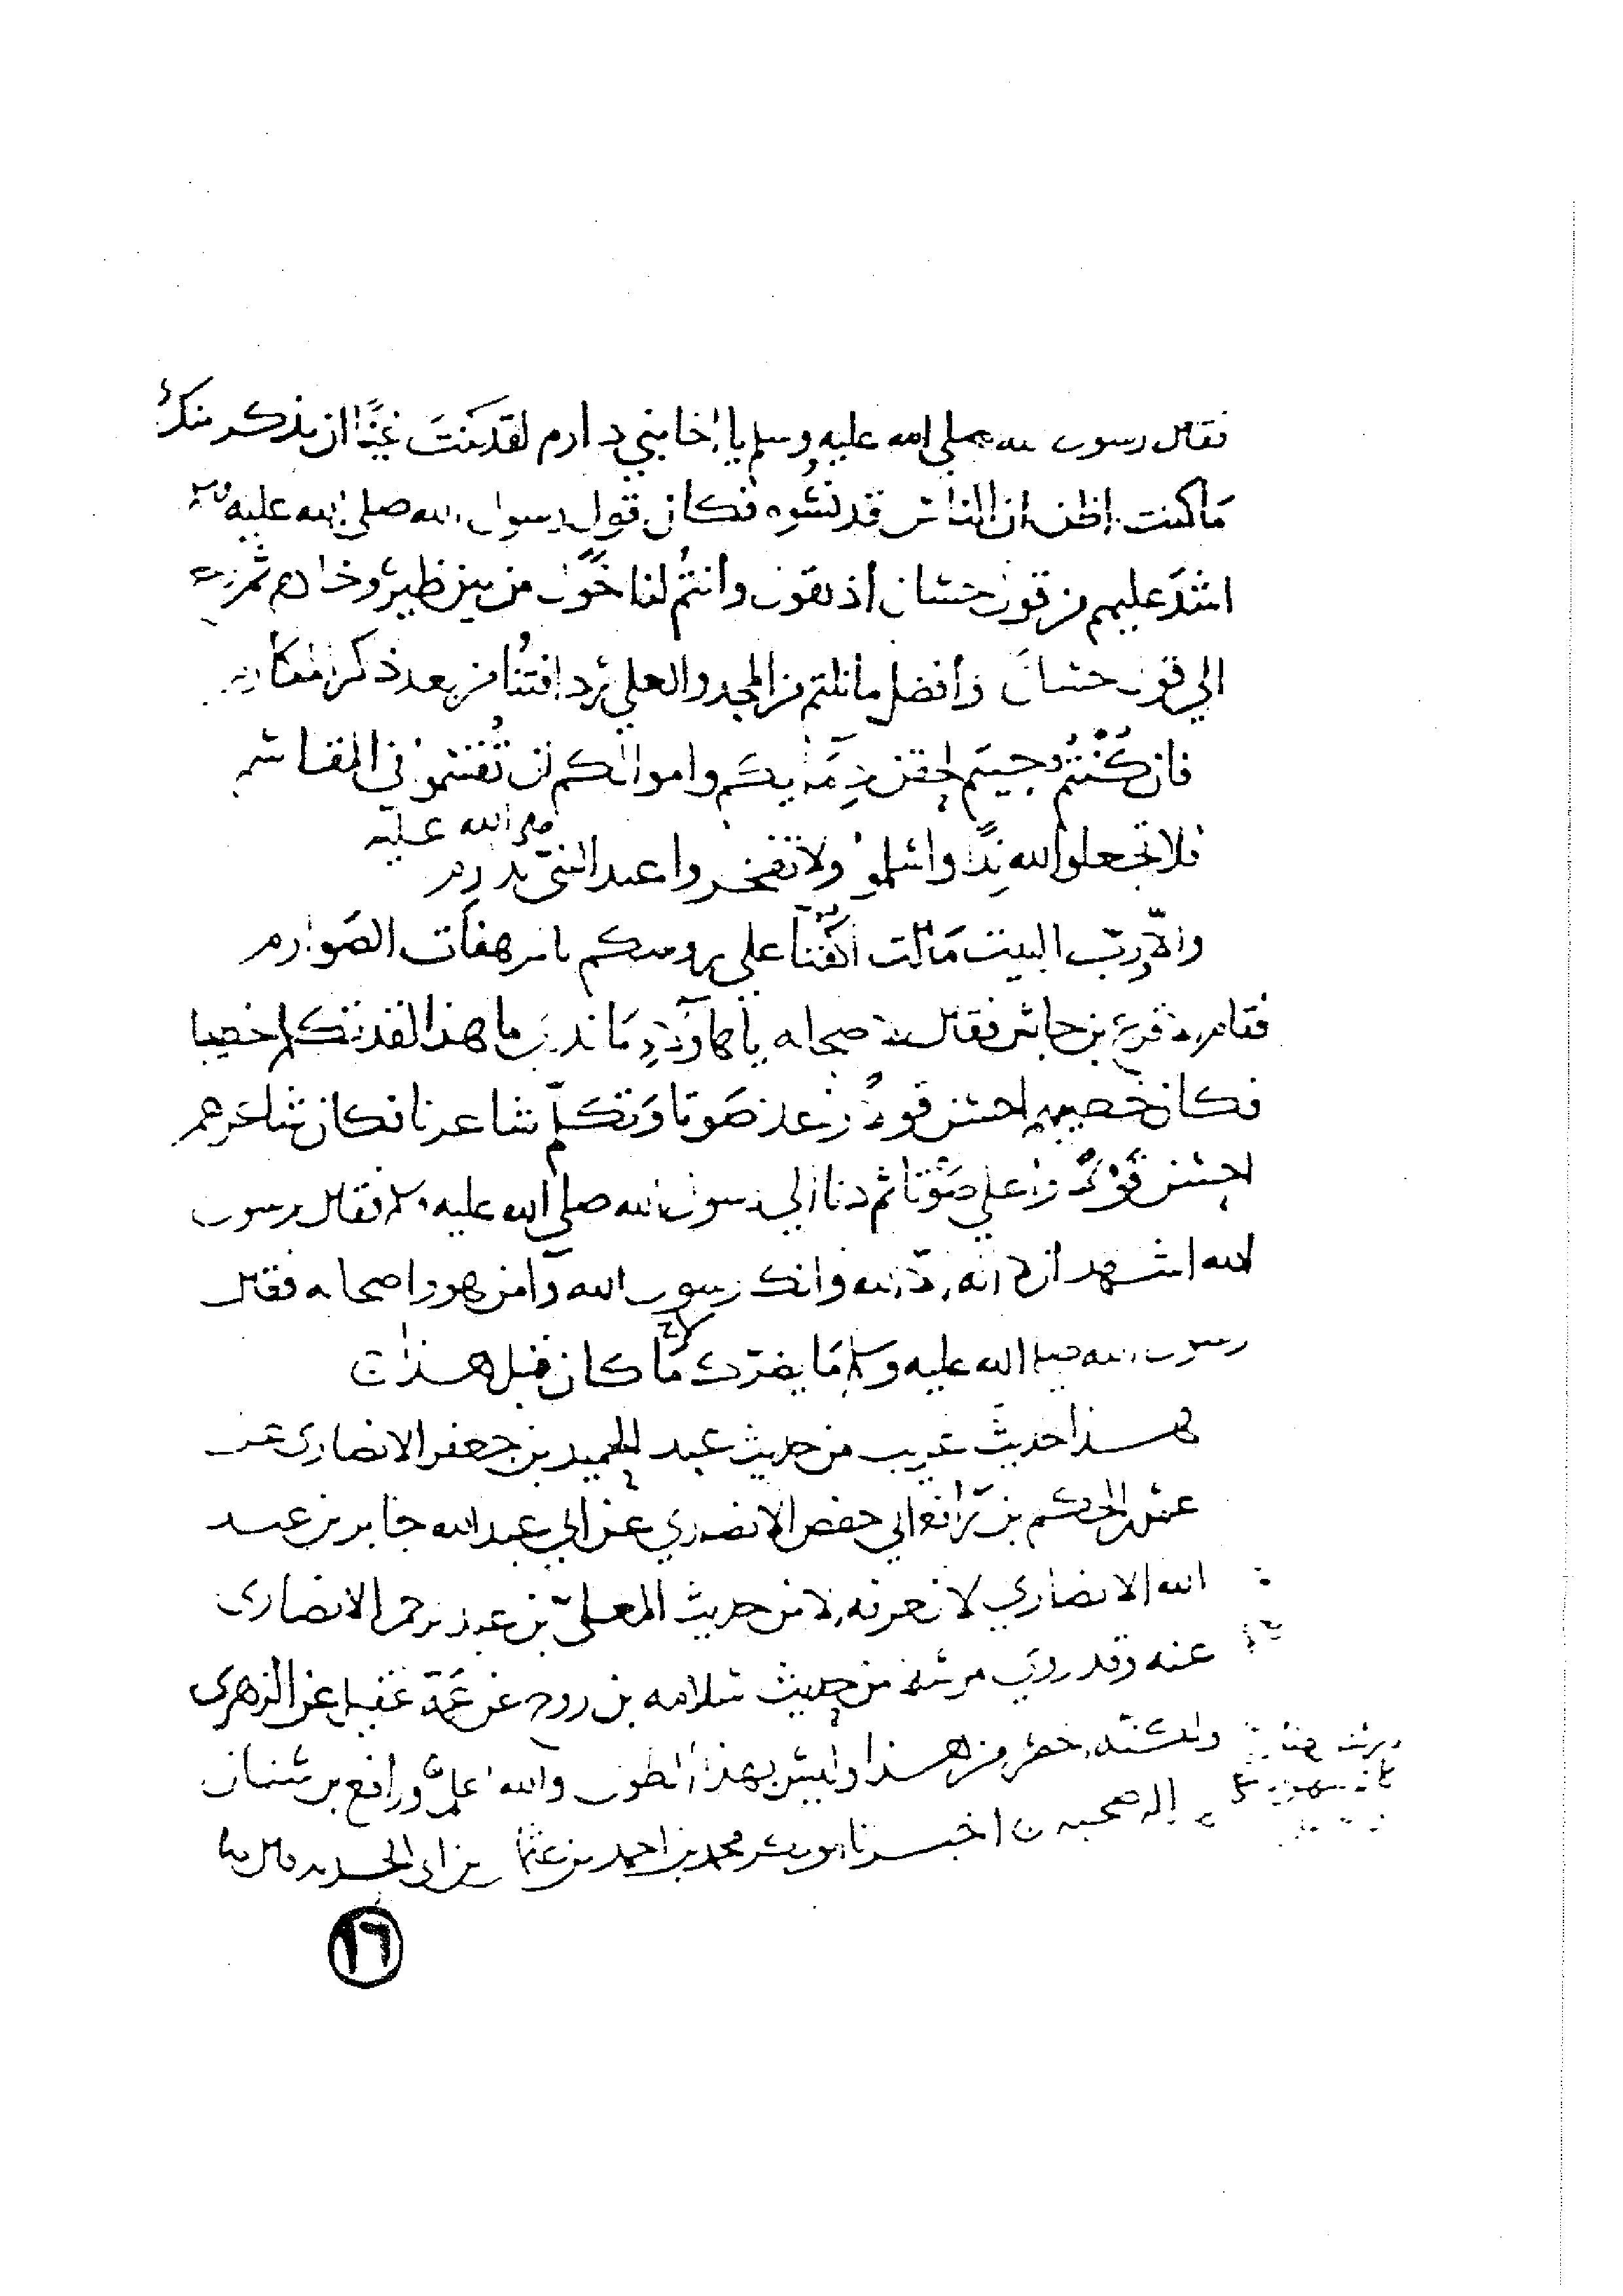 فقال رسول الله صلى الله عليه وسلم يا اخا بني دارم لقد كنت غنيًّا ان يذكر منك
ما كنت اظن ان الناس قد نسوه فكان قول رسول الله صلى الله عليه
اشد عليهم من قول حسان اذ يقول وانتم لنا خول من بين ظير وخادم ثم رجع
الي قول حسان وافضل ما نلتم من المجد والعلي ردافتنا من بعد ذكر المكارم
فان كنتم جيتم لحقن دمايكم واموالكم ان تقسموا في المقاسم
فلا تجعلوا لله ندًّا واسلموا ولا تفخروا عند النبي بدارم
صلى الله عليه
والا ورب البيت مالت اكفنا علي روسكم بالمرهفات الصوارم
فقام الاقرع بن حابس فقال لاصحابه يا هاولاء ما ندري ما هذا لقد تكلم خطيبنا
فكان خطيبهم احسن قولا واعلا صوتا وتكلم شاعرنا فكان شاعرهم
احسن قولا واعلي صوتا ثم دنا الي رسول الله صلى الله عليه وسلم فقال رسول
الله اشهد ان لا اله الا الله وانك رسول الله وامن هو واصحابه فقال
رسول الله صلى الله عليه وسلم ما يضرك ما كان قبل هذا
هذا حديث غريب من حديث عبد الحميد بن جعفر الانصاري عن
عمر بن الحكم بن رافع ابي حفص الانصاري عن ابي عبد الله جابر بن عبد
الله الانصاري لا نعرفه الا من حديث المعلى بن عبد الرحمن الانصاري
عنه وقد روي مرسلا من حديث سلامه بن روح عن عمه عقيل عن الزهري
ولكنه اخصر من هذا وليس بهذا الطول والله اعلم ورافع بن سنان
له صحبه اخبرنا ابو بكر محمد بن احمد بن عثمان بن ابي الحديد قال
١٦